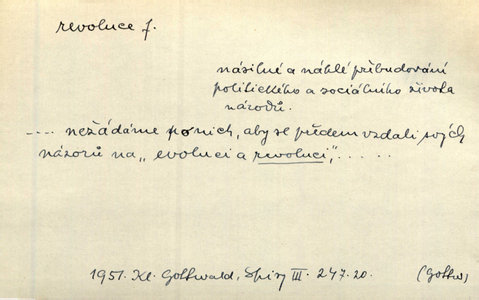 revoluce f.
násilné a náhlé přebudování
politického a sociálního života
národů.
.... nežádáme po nich, aby se předem vzdali svých
názorů na „evoluci a revoluci", .....
1951. Kl. Gottwald, Spisy III. 247.20. (Gottw)